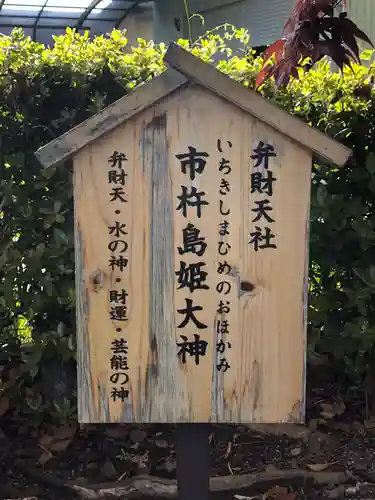 弁財天社
いちきしまひめのおほかみ
市杵島姫大神
弁財天・水の神・財運・芸能の神